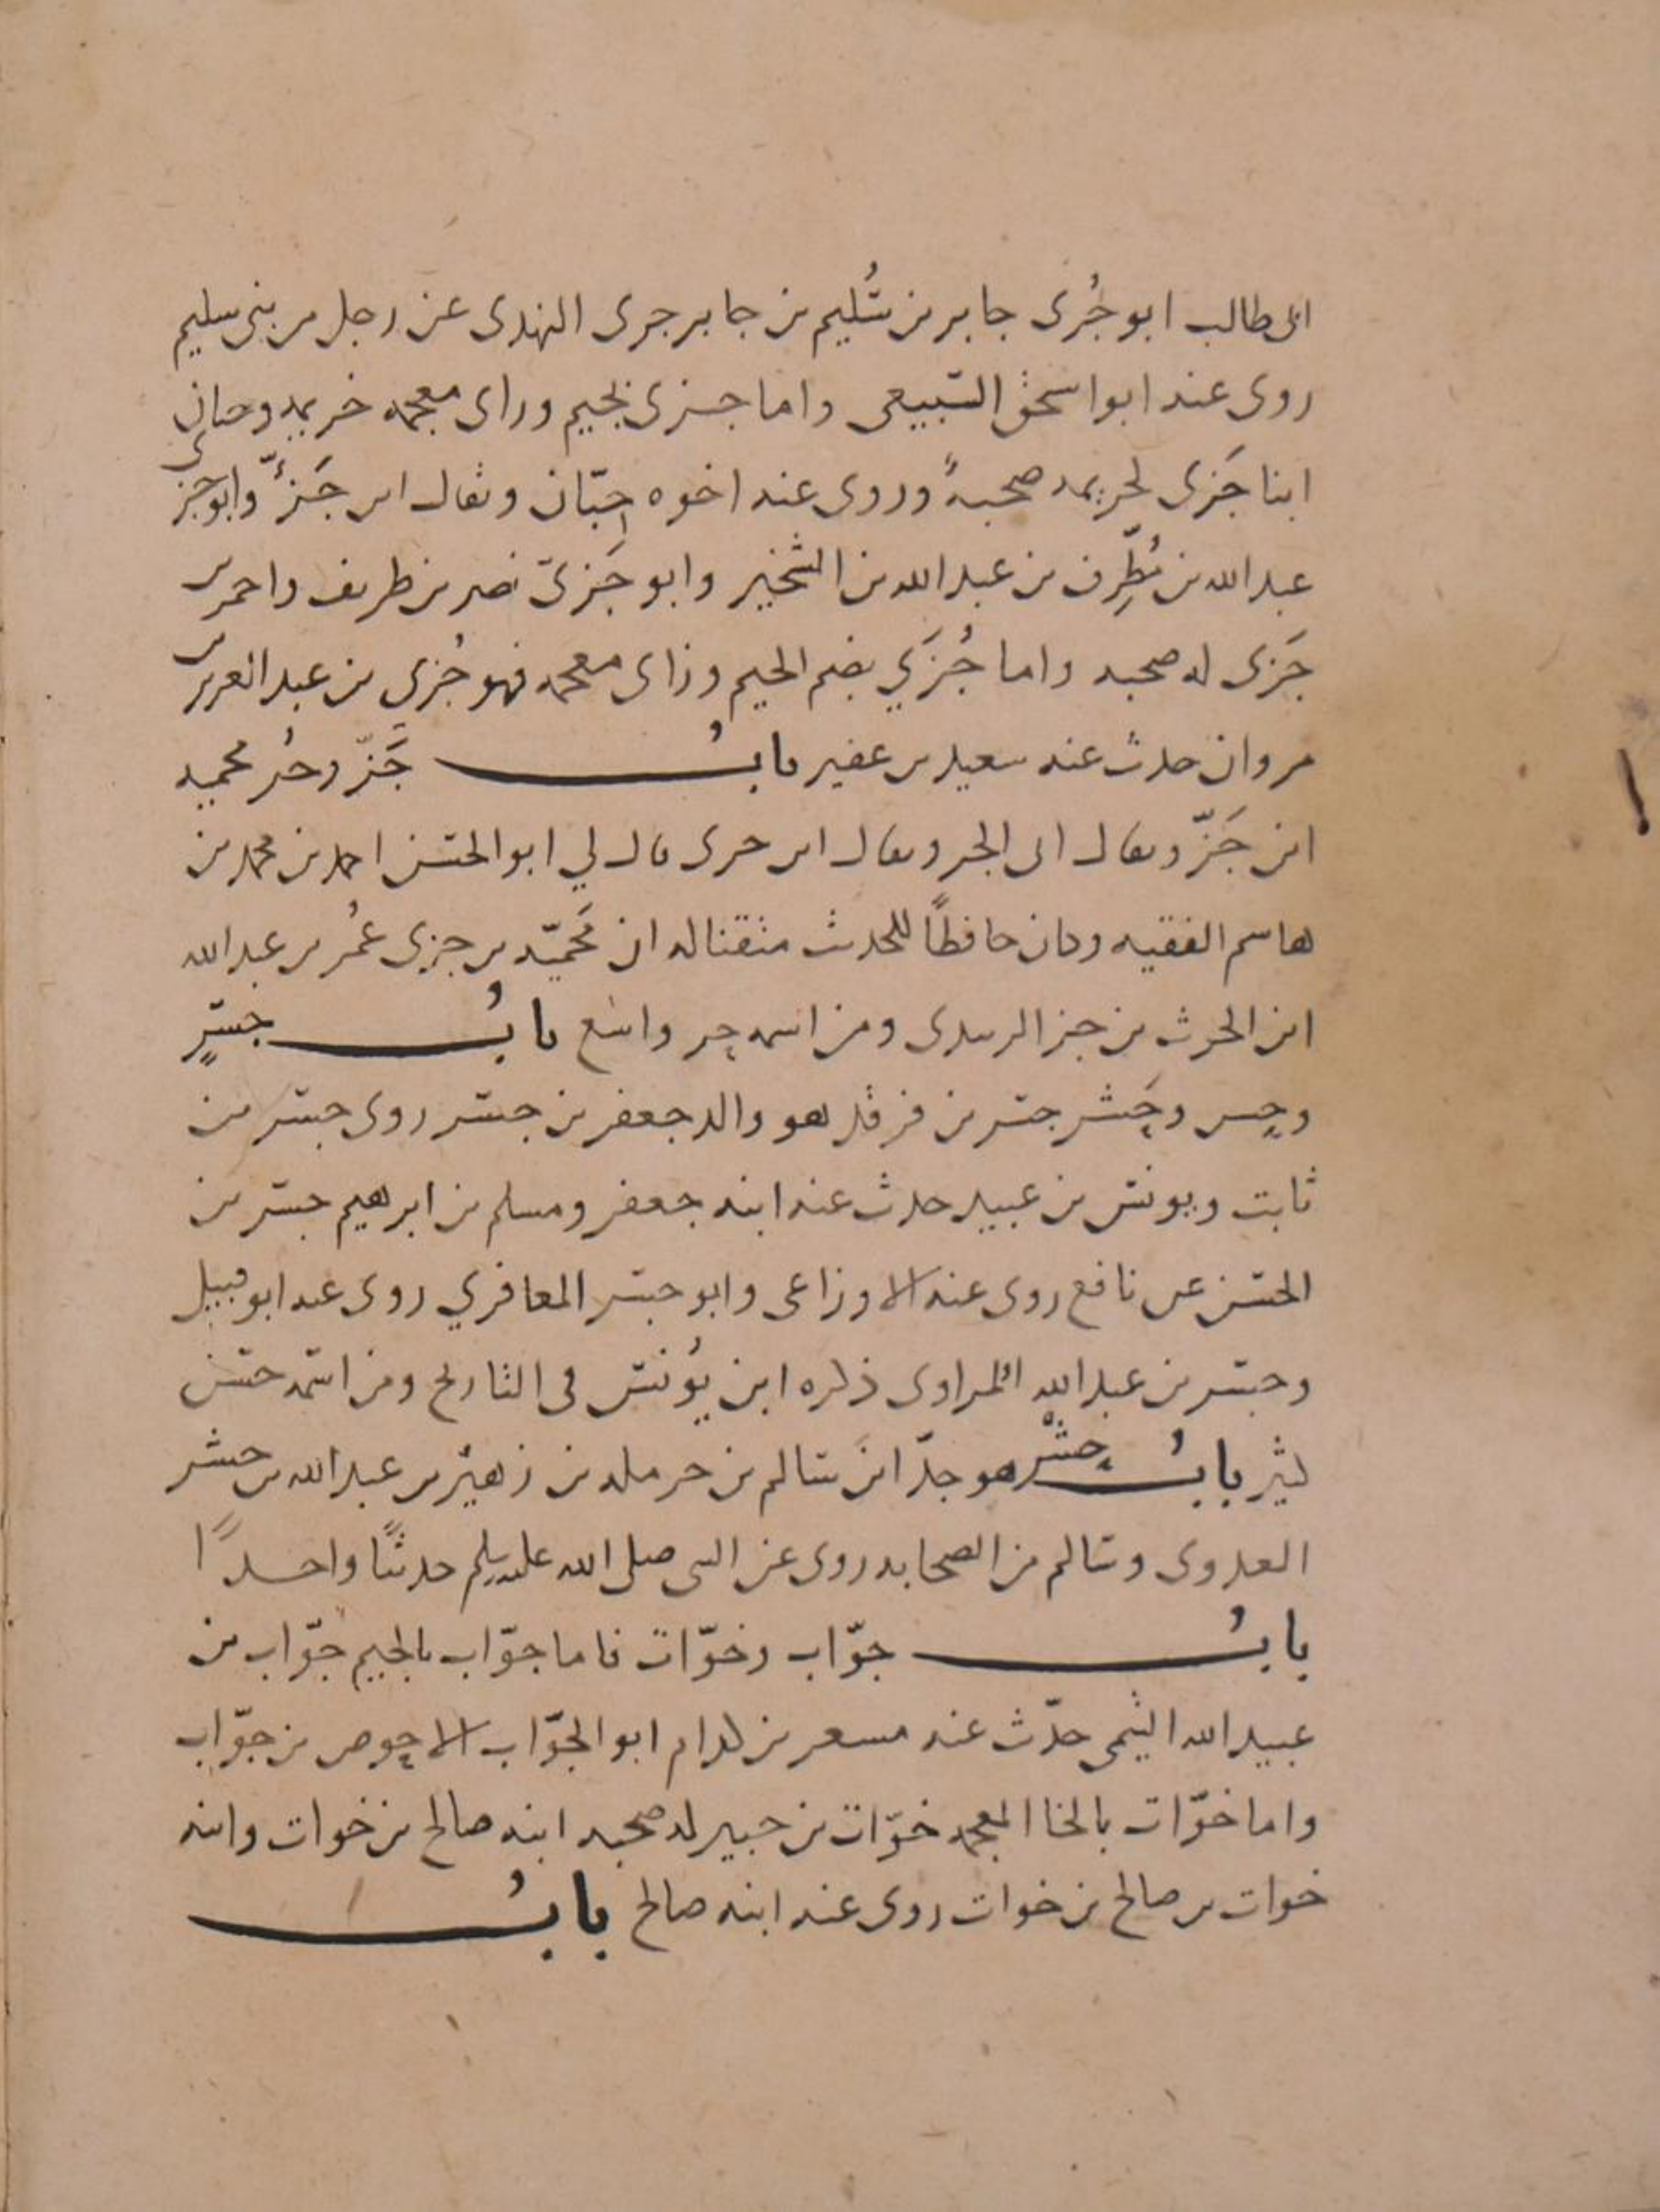 ابى طالب ابو جُرى جابر بن سُليم بن جابر جرى النهدى عن رجل من بنى سليم
روى عنه ابو اسحق السبيعى واما جزى بجيم وزاى معجمه خزيمه وحبان
ابنا جَزى لخزيمه صحبةً وروى عنه اخوه حِبّان ويقال ابن جَزْءٍ وابو جزى
عبد الله بن مُطَرِّف بن عبد الله بن الشخير وابو جَزىّ نصر بن طريف واحمر بن
جَزى له صحبه واما جُزَي بضم الجيم وزاى معجمه فهو جُزي بن عبد العزيز بن
مروان حدث عنه سعيد بن عفير بابُ جَزّ وحُر محميه
ابن جَزّ ويقال ابن الجز ويقال ابن جزى قال لي ابو الحسن احمد بن محمد بن
هاسم الفقيه وكان حافظًا للحديث متقنا له ان مَحميّه بن جزي عمُر بن عبد الله
ابن الحرث بن جز الزبيدى ومن اسمه حر واسع بابُ جسرٍ
وحسر وحَشر جسر بن فرقد هو والد جعفر بن جسر روى جسر عن
ثابت ويونس بن عبيد حدث عنه ابنه جعفر ومسلم بن ابرهيم جسر بن
الحسن عن نافع روى عنه الاوزاعى وابو جسر المعافري روى عنه ابو قبيل
وجسر بن عبد الله المرادى ذكره ابن يُونس فى التاريخ ومن اسمه حسن
كثير بابُ حشرٍ هو جدّ ابن سالم بن حرمله بن زهيْر بن عبد الله بن حشر
العدوى وسالم من الصحابه روى عن النبى صلى الله عليه وسلم حديثًا واحدًا
بابُ جوّاب وخوّات فاما جوّاب بالجيم جوّاب بن
عبيد الله التيمى حدّث عنه مسعر بن كدام ابو الجوّاب الاحوص بن جوّاب
واما خوّات بالخا المعجمه خوّات بن جبير له صحبه ابنه صالح بن خوات وابنه
خوات بن صالح بن خوات روى عنه ابنه صالح بابُ